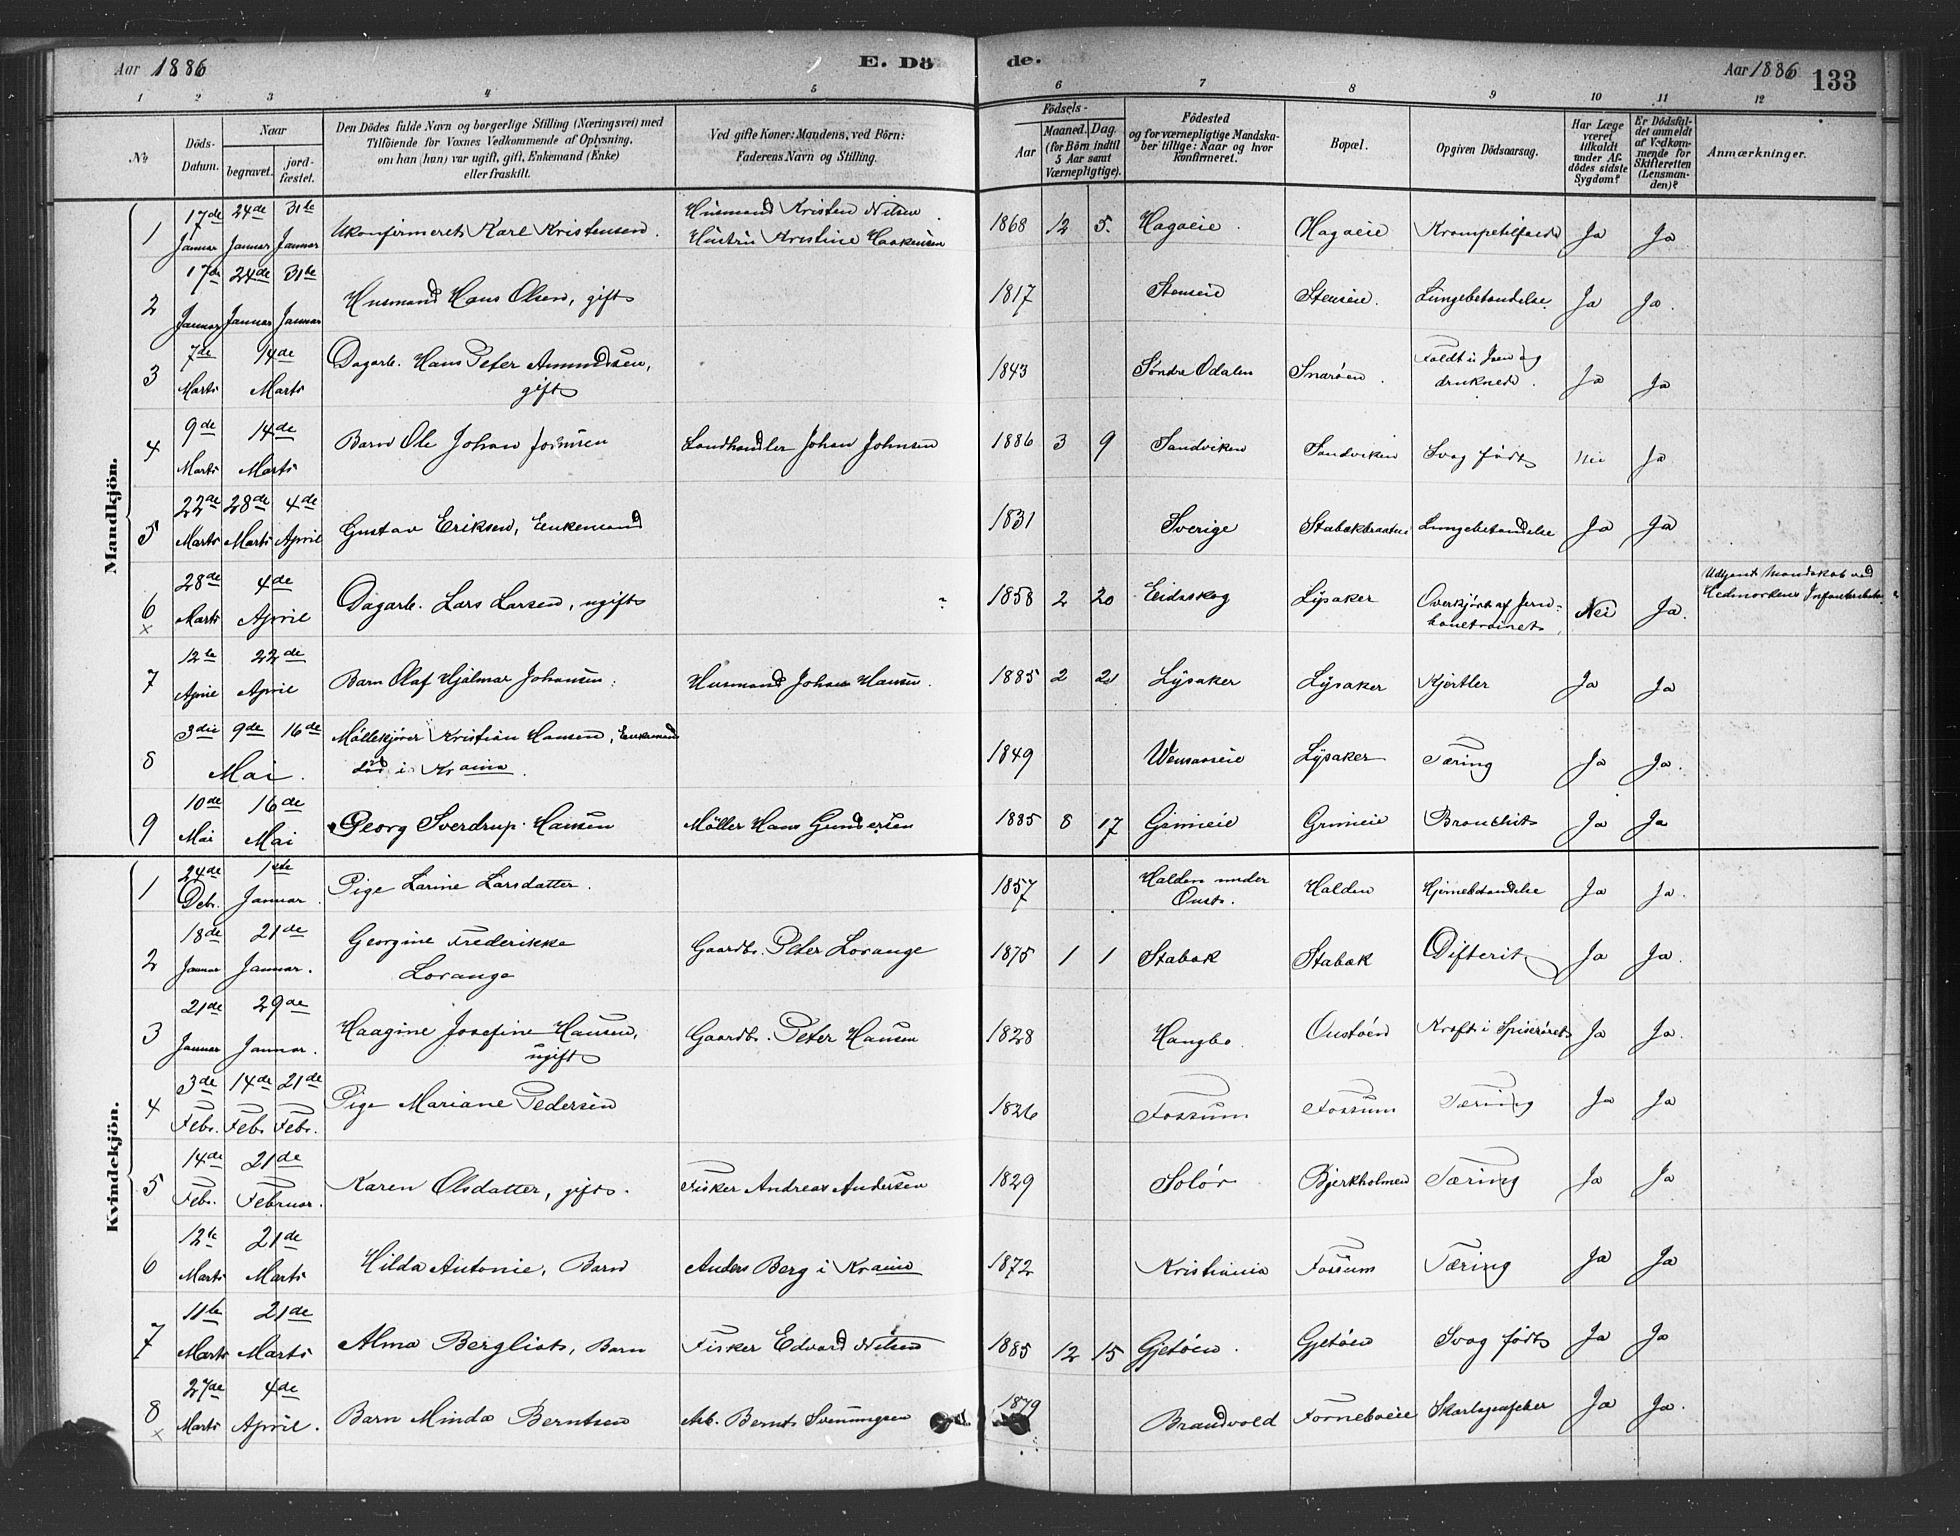 Aar 1886 E. Dö de. Aar 1886 133
1 2 3 4 5 6 7 8 9 10 11 12
No
Döds-Datum.
Naar
begravet. jord-fæstet.
Den Dödes fulde Navn og borgerlige Stilling (Næringsvei) med
Tilföiende for Voxnes Vedkommende af Oplysning,
om han (hun) var ugift, gift, Enkemand (Enke)
eller fraskilt.
Ved gifte Koner: Mandens, ved Börn:
Faderens Navn og Stilling.
Födsels-
Aar
Maaned. Dag.
(for Börn indtil
5 Aar samt
Værnepligtige).
Födested
og for værnepligtige Mandska-
ber tillige: Naar og hvor
konfirmeret.
Bopæl.
Opgiven Dödsaarsag.
Har Læge
været
tilkaldt
under Af-
dödes sidste
Sygdom?
Er Dödsfal-
det anmeldt
af Vedkom-
mende for
Skifteretten
(Lensman-
den)?
Anmærkninger.
Mandkjön.
1 17de Januar 24de Januar 31te Januar Ukonfirmeret Karl Kristensen. Husmand Kristen Nilsen
Hustru Kristine Haakensen 1868 12 5. Hagaeie. Hagaeie Krampetilfælde Ja Ja
2 17de Januar 24de Januar 31te Januar Husmand Hans Olsen, gift 1817 Stenseie Stenseie. Lungebetændelse. Ja Ja.
3 7de Marts 14de Marts Dagarb. Hans Peter Amundsen,
gift 1843 Søndre Odalen Snarøen. Faldt i Isen og
druknede. Ja Ja
4 9de Marts 14de Marts Barn Ole Johan Johnsen Landhandler Johan Johnsen 1886 3 9 Sandviken Sandviken Svag født Nei Ja
5 22de Marts 28de Marts 4de April Gustav Eriksen, Enkemand 1831 Sverige Stabækbraaten Lungebetændelse Ja Ja
6 x 28de Marts 4de April Dagarb. Lars Larsen, ugift 1858 2 20 Eidskog Lysaker Overkjørt af Jern-
banetrainet. Nei Ja. Udtjent Mandskab ved
Hedmarkens Infanteribat.
7 12te April 22de April Barn Olaf Hjalmar Johansen. Husmand Johan Hansen. 1885 2 21 Lysaker Lysaker Kjertler Ja Ja
8 3die 9de 16de Mai. Møllekjører Kristian Hansen, Enkemand
død i Krania. 1849 Lysaker Tæring Ja Ja.
9 10de Mai 16de Mai Georg Sverdrup Hansen Møller Hans Gundersen 1885 8 17 Grinieie Grinieie Bronchit Ja Ja
Kvindekjön.
1 24de Debr. 1ste Januar. Pige Larine Larsdatter. 1857 Halden under
Oust. Halden Hjernebetændelse Ja Ja.
2 18de Januar 21de Januar. Georgine Frederikke
Lorange Gaardb. Peter Lorange 1875 1 1 Stabæk Stabæk Difterit Ja Ja.
3 21de Januar 29de Januar. Haagine Josefine Hansen,
ugift Gaardb. Peter Hansen 1828 Hangbo. Oustøen Kræft i Spiserøret Ja Ja.
4 3de Febr. 14de Febr 21de Febr. Pige Mariane Pedersen 1826 Fossum Fossum Tæring Ja Ja
5 14de Febr. 21de Februar. Karen Olsdatter, gift. Fisker Andreas Andersen 1829 Solør Bjerkholmen Tæring Ja Ja
6 12te Marts 21de Marts Hilda Antonie, Barn Anders Berg i Krania 1872 Kristiania Fossum Tæring Ja Ja
7 11te Marts 21de Marts Alma Bergliot, Barn Fisker Edvard Nilsen 1885 12 15 Gjetøen. Gjetøen Svag født Ja Ja
8 x 27de Marts 4de April. Barn Minda Berntsen Arb. Bernt Svenungsen 1879 Brandvold Forneboeie Skarlagensfeber Ja Ja.